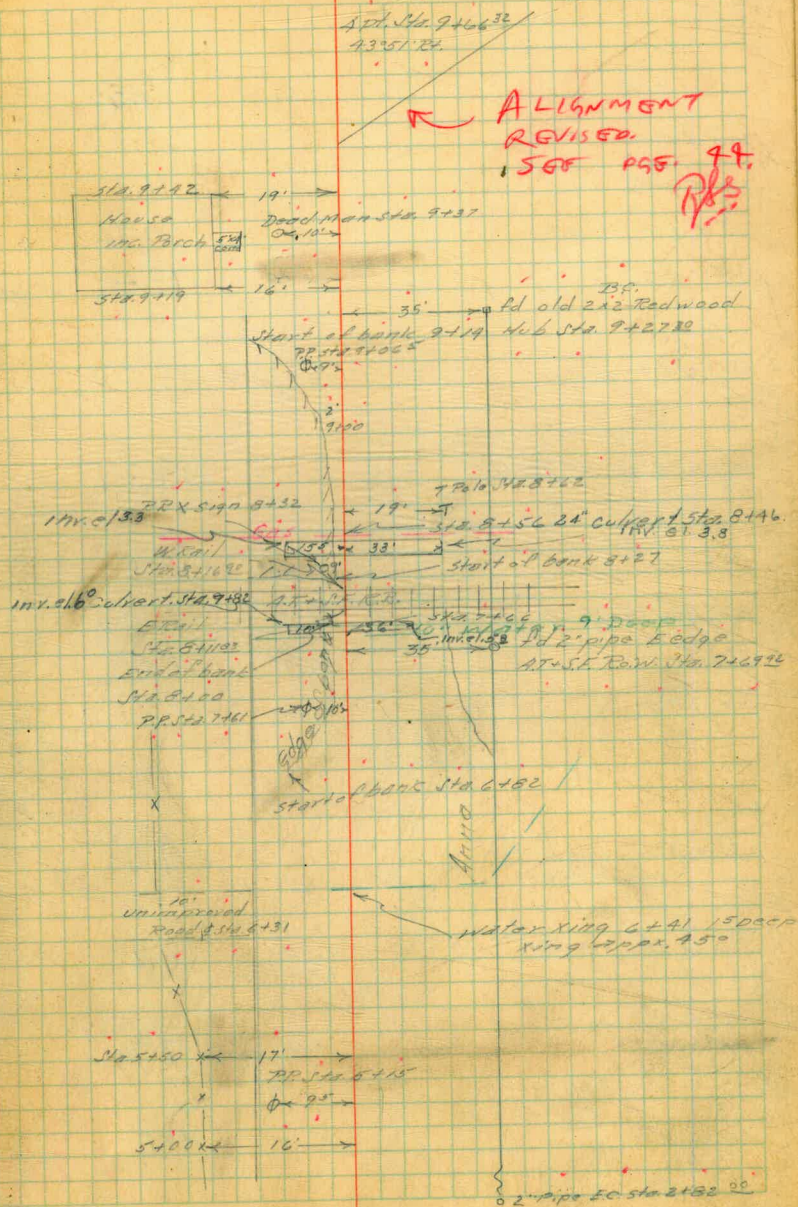 Δ pt. Sta. 9+66 32
43°51' Rt.
ALIGNMENT
REVISED.
SEE PGE. 44.
Sta. 9+42
19'
House
inc. Porch
Dead Man Sta. 9+37
10'
Sta. 9+19
16'
35'
B.C.
fd old 2x2 Redwood
Hub Sta. 9+27
Start of bank 9+19
P.P. Sta. 9+06 5
9'
2'
9+00
T Pole Sta. 8+62
R.R. X Sign 8+32
19'
Inv. el 3.3
Gas
Sta. 8+56 24" Culvert Sta. 8+46
Inv. el. 3.8
W. Rail
Sta. 8+16
33'
Start of bank 8+27
Inv. el. 6 0 Culvert. Sta. 7+82
A.T. + S.F. R.R.
E Rail
Sta. 8+11
10'
36'
Sta. 7+66
9' Deep
Inv. el. 5 8
35'
fd 2" pipe E edge
A.T. + S.F. Ro.W. Sta. 7+69 96
End of bank
Sta. 8+00
P.P. Sta. 7+61
10'
Edge of bank
Start of bank Sta. 6+82
10'
unimproved
Road Sta. 6+31
Water Xing 6+41 1 5 Deep
Xing appx. 45°
Sta. 5+50
17'
P.P. Sta. 5+15
9 5
5+00
16'
2" Pipe E.C. Sta. 2+82 00